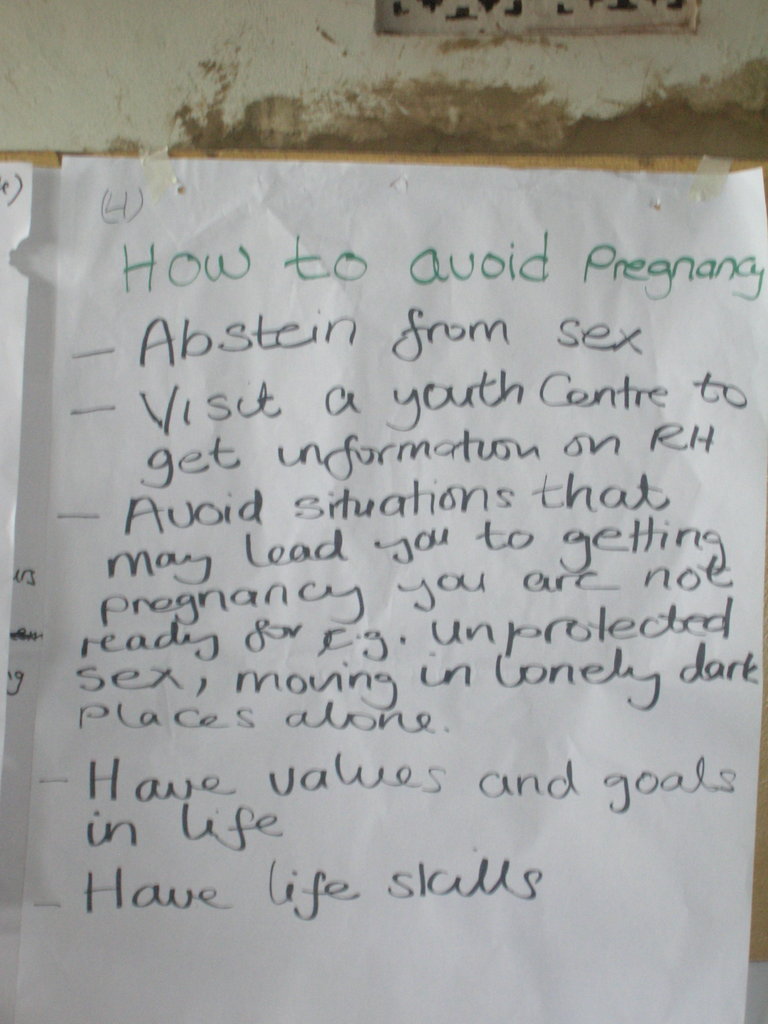 (4)
How to avoid Pregnancy
– Abstein from sex
– Visit a youth Centre to
get information on RH
– Avoid situations that
may lead you to getting
pregnancy you are not
ready for E.g. unprotected
sex, moving in lonely dark
places alone.
– Have values and goals
in life
– Have life skills